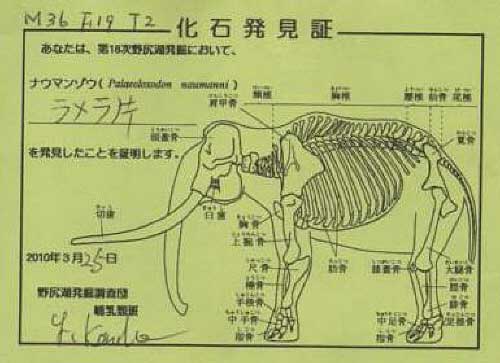 M36 F19 T2
化石発見証
あなたは、第18次野尻湖発掘において、
ナウマンゾウ( Palaeoloxodon naumanni )
ラメラ片
を発見したことを証明します。
頸椎 胸椎 腰椎 仙骨 尾椎
肩甲骨
頭蓋骨
寛骨
切歯
臼歯
胸骨
上腕骨
尺骨
橈骨
手根骨
中手骨
指骨
肋骨
膝蓋骨
大腿骨
脛骨
腓骨
中足骨 足根骨
指骨
2010年3月25日
野尻湖発掘調査団
哺乳類班